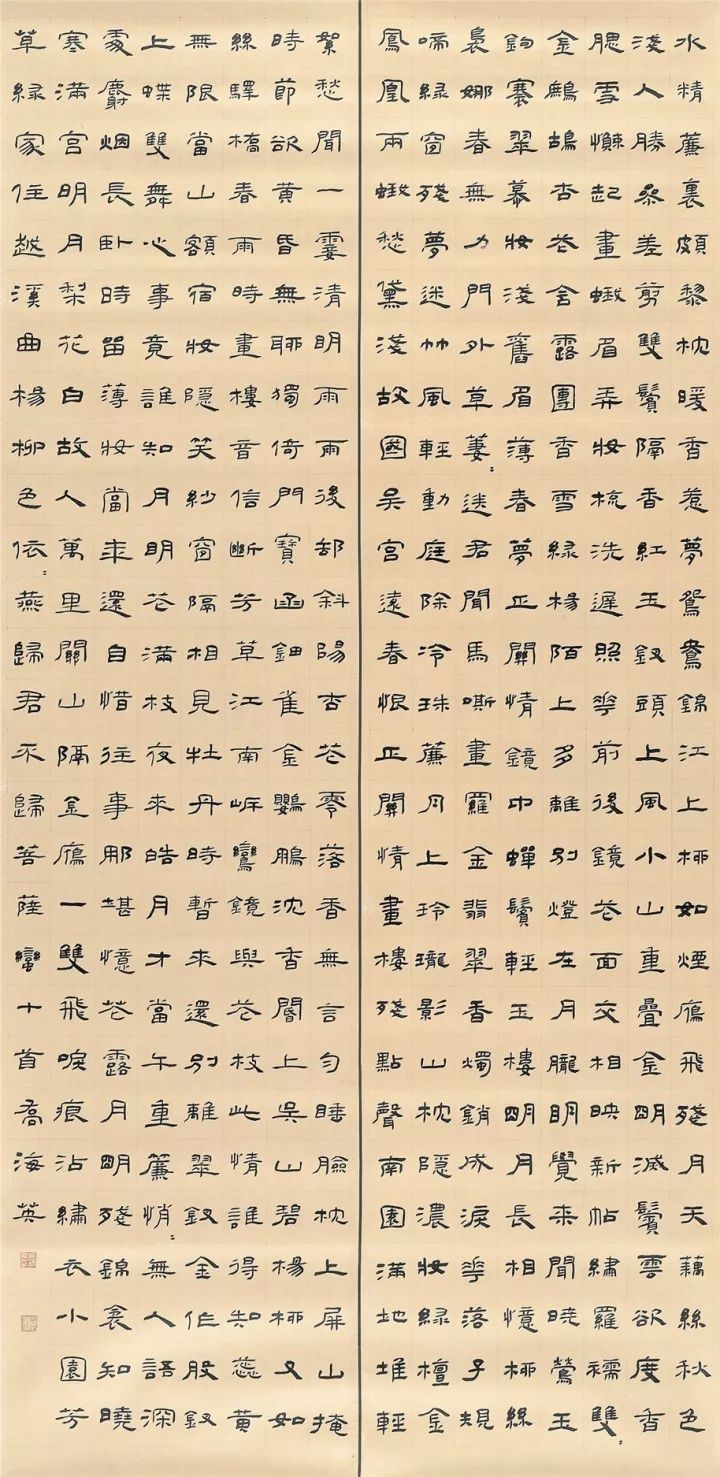 水精簾裏頗黎枕暖香惹夢鴛鴦錦江上柳如煙雁飛殘月天藕絲秋色
淺人勝參差剪雙鬢隔香紅玉釵頭上風小山重疊金明滅鬢雲欲度香
腮雪懶起畫蛾眉弄妝梳洗遲照花前後鏡花面交相映新帖繡羅襦雙〻
金鷓鴣杏花含露團香雪綠楊陌上多離別燈在月朧明覺來聞曉鶯玉
鉤褰翠幕妝淺舊眉薄春夢正關情鏡中蟬鬢輕玉樓明月長相憶柳絲
裊娜春無力門外草萋〻送君聞馬嘶畫羅金翡翠香燭銷成淚花落子規
啼綠窗殘夢迷竹風輕動庭除冷珠簾月上玲瓏影山枕隱濃妝綠檀金
鳳凰兩蛾愁黛淺故國吳宮遠春恨正關情畫樓殘點聲南園滿地堆輕
絮愁聞一霎清明雨雨後卻斜陽杏花零落香無言勻睡臉枕上屏山掩
時節欲黃昏無聊獨倚門寶函鈿雀金沈香閣上吳山碧楊柳又如
絲驛橋春雨時畫樓音信斷芳草江南岸鸞鏡與花枝此情誰得知蕊黃
無限當山額宿妝隱笑紗窗隔相見牡丹時暫來還別離翠釵金作股釵
上蝶雙舞心事竟誰知月明花滿枝夜來皓月才當午重簾悄〻無人語深
處麝烟長臥時留薄妝當年還自惜往事那堪憶花露月明殘錦衾知曉
寒滿宮明月梨花白故人萬里關山隔金雁一雙飛淚痕沾繡衣小園芳
草綠家住越溪曲楊柳色依〻燕歸君不歸菩薩蠻十首喬海英